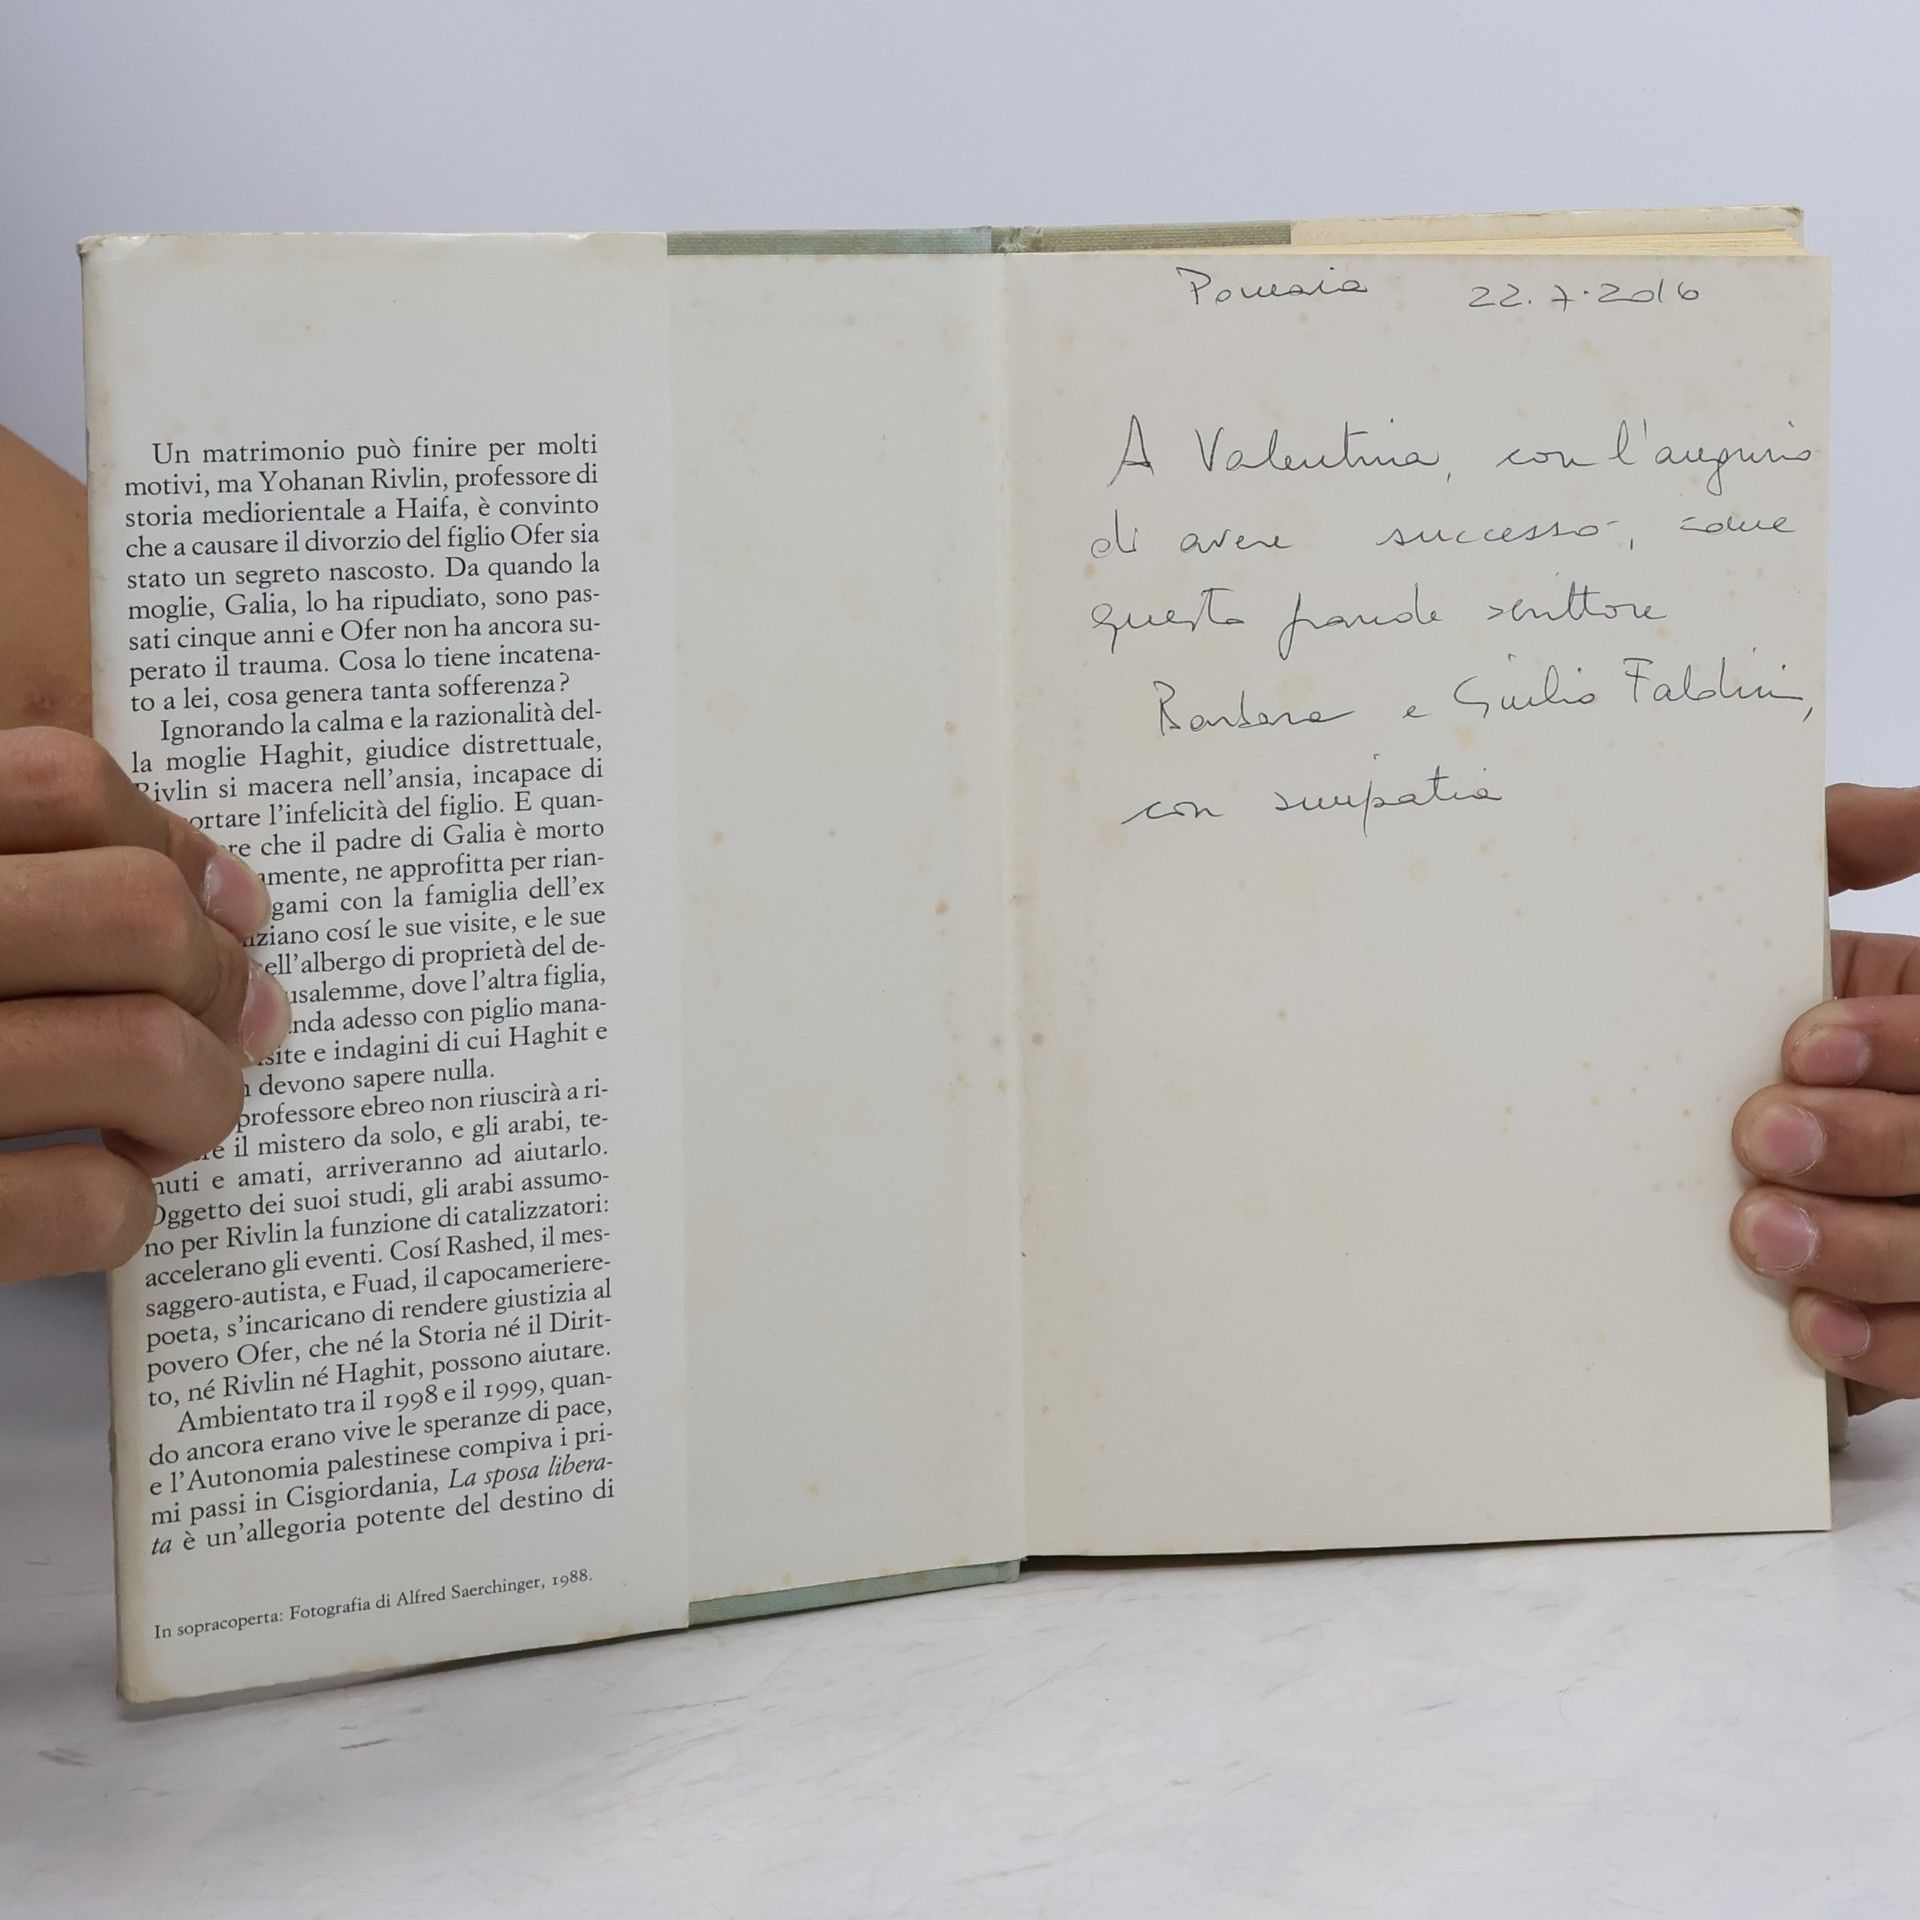 Un matrimonio può finire per molti
motivi, ma Yohanan Rivlin, professore di
storia mediorientale a Haifa, è convinto
che a causare il divorzio del figlio Ofer sia
stato un segreto nascosto. Da quando la
moglie, Galia, lo ha ripudiato, sono pas-
sati cinque anni e Ofer non ha ancora su-
perato il trauma. Cosa lo tiene incatena-
to a lei, cosa genera tanta sofferenza?
Ignorando la calma e la razionalità del-
la moglie Haghit, giudice distrettuale,
Rivlin si macera nell'ansia, incapace di
ortare l'infelicità del figlio. E quan-
re che il padre di Galia è morto
amente, ne approfitta per rian-
gami con la famiglia dell'ex
iziano cosí le sue visite, e le sue
ell'albergo di proprietà del de-
usalemme, dove l'altra figlia,
nda adesso con piglio mana-
site e indagini di cui Haghit e
n devono sapere nulla.
professore ebreo non riuscirà a ri-
re il mistero da solo, e gli arabi, te-
nuti e amati, arriveranno ad aiutarlo.
Oggetto dei suoi studi, gli arabi assumo-
no per Rivlin la funzione di catalizzatori:
accelerano gli eventi. Cosí Rashed, il mes-
saggero-autista, e Fuad, il capocameriere-
poeta, s'incaricano di rendere giustizia al
povero Ofer, che né la Storia né il Dirit-
to, né Rivlin né Haghit, possono aiutare.
Ambientato tra il 1998 e il 1999, quan-
do ancora erano vive le speranze di pace,
e l'Autonomia palestinese compiva i pri-
mi passi in Cisgiordania, La sposa libera-
ta è un'allegoria potente del destino di
In sopracoperta: Fotografia di Alfred Saerchinger, 1988.
Pomaia 22.7.2016
A Valentina, con l'augurio
di avere successo, come
questo grande scrittore
Barbara e Giulio Faldini,
con simpatia